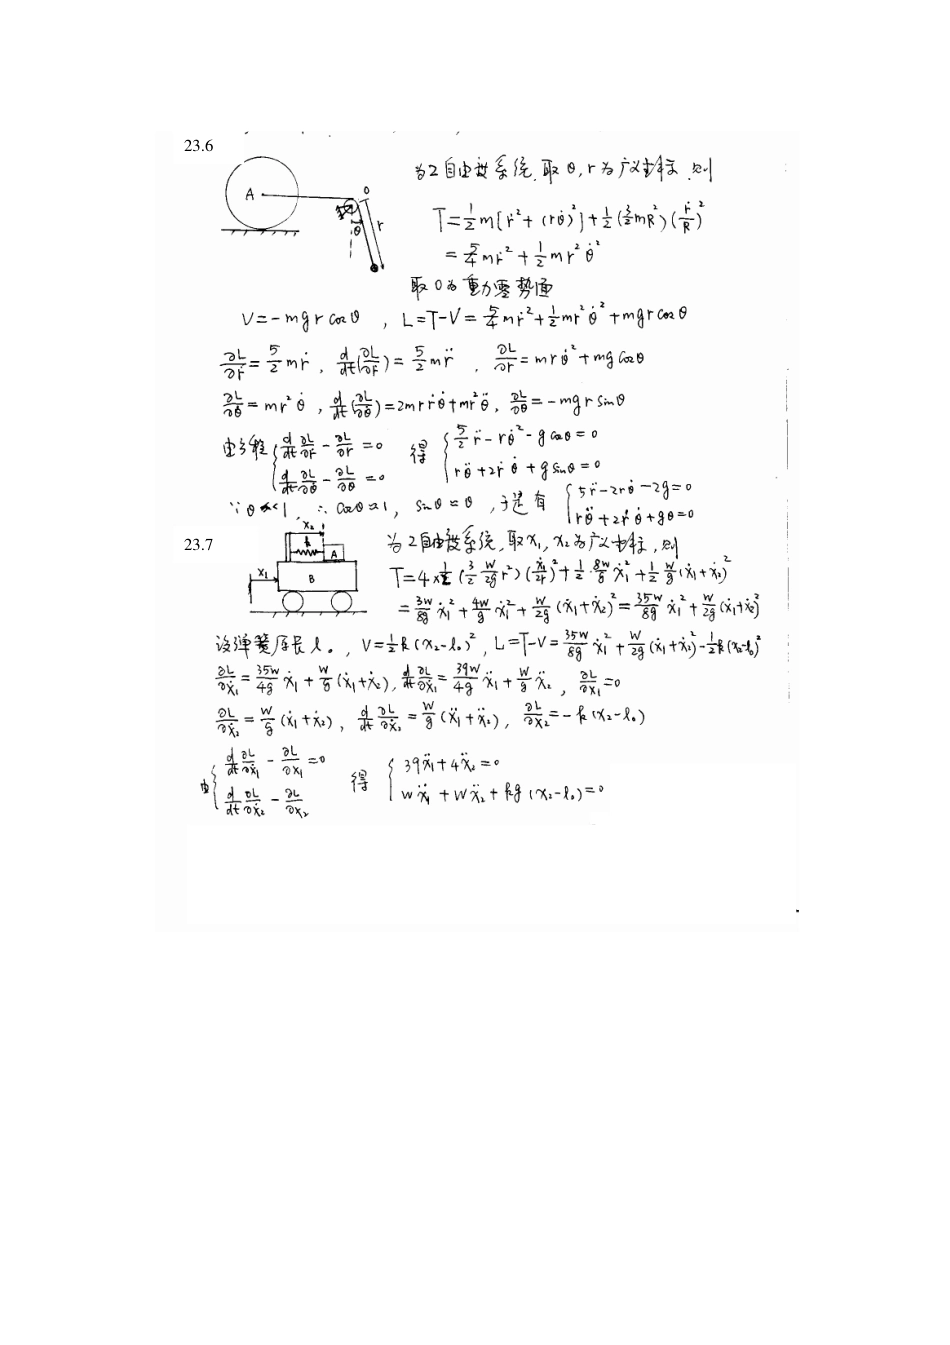 23.6
A
O
r
θ
为2自由度系统,取θ,r为广义坐标,则
T=½m[ṙ²+(rθ̇)²]+½(3/2mR²)(ṙ/R)²
=5/4mṙ²+½mr²θ̇²
取O为重力零势面
V=-mgrcosθ , L=T-V=5/4mṙ²+½mr²θ̇²+mgrcosθ
∂L/∂ṙ=5/2mṙ, d/dt(∂L/∂ṙ)=5/2mr̈, ∂L/∂r=mrθ̇²+mgcosθ
∂L/∂θ̇=mr²θ̇, d/dt(∂L/∂θ̇)=2mrṙθ̇+mr²θ̈, ∂L/∂θ=-mgrsinθ
由方程{d/dt ∂L/∂ṙ-∂L/∂r=0 得 {5/2r̈-rθ̇²-gcosθ=0
d/dt ∂L/∂θ̇-∂L/∂θ=0 rθ̈+2ṙθ̇+gsinθ=0
∵θ≪1, ∴cosθ≈1, sinθ≈θ,于是有{5r̈-2rθ̇²-2g=0
rθ̈+2ṙθ̇+gθ=0
23.7
x₂
k
A
x₁
B
为2自由度系统,取x₁,x₂为广义坐标,则
T=4×½(3/2 W/2g r²)(ẋ₁/2r)²+½·8W/g ẋ₁²+½ W/g(ẋ₁+ẋ₂)²
=3W/8g ẋ₁²+4W/g ẋ₁²+W/2g(ẋ₁+ẋ₂)²=35W/8g ẋ₁²+W/2g(ẋ₁+ẋ₂)²
设弹簧原长l₀, V=½k(x₂-l₀)², L=T-V=35W/8g ẋ₁²+W/2g(ẋ₁+ẋ₂)²-½k(x₂-l₀)²
∂L/∂ẋ₁=35W/4g ẋ₁+W/g(ẋ₁+ẋ₂), d/dt ∂L/∂ẋ₁=39W/4g ẍ₁+W/g ẍ₂, ∂L/∂x₁=0
∂L/∂ẋ₂=W/g(ẋ₁+ẋ₂), d/dt ∂L/∂ẋ₂=W/g(ẍ₁+ẍ₂), ∂L/∂x₂=-k(x₂-l₀)
由{d/dt ∂L/∂ẋ₁-∂L/∂x₁=0 得 {39ẍ₁+4ẍ₂=0
d/dt ∂L/∂ẋ₂-∂L/∂x₂ Wẍ₁+Wẍ₂+kg(x₂-l₀)=0